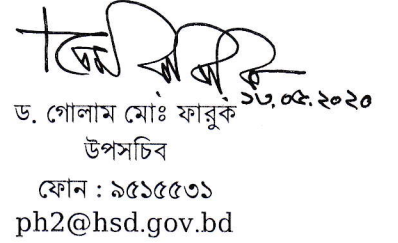 ১৩.০৫.২০২০
ড. গোলাম মোঃ ফারুক
উপসচিব
ফোন : ৯৫১৫৫৩১
ph2@hsd.gov.bd